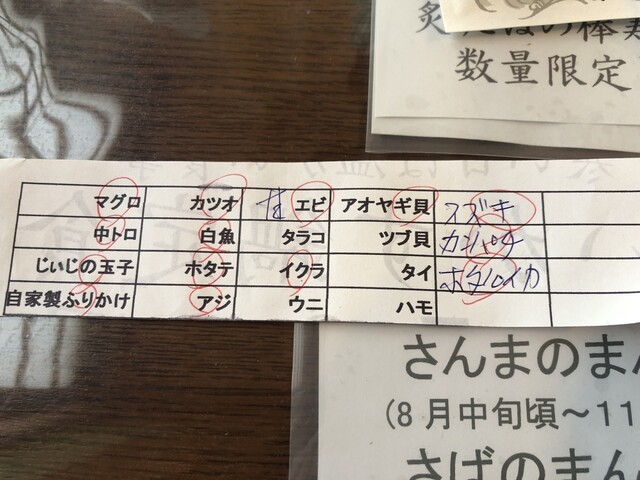 数量限定
マグロ カツオ 甘エビ アオヤギ貝 スズキ
中トロ 白魚 タラコ ツブ貝 カンパチ
じぃじの玉子 ホタテ イクラ タイ ホタルイカ
自家製ふりかけ アジ ウニ ハモ
さんまのまん
(8月中旬頃～11
さばのまん